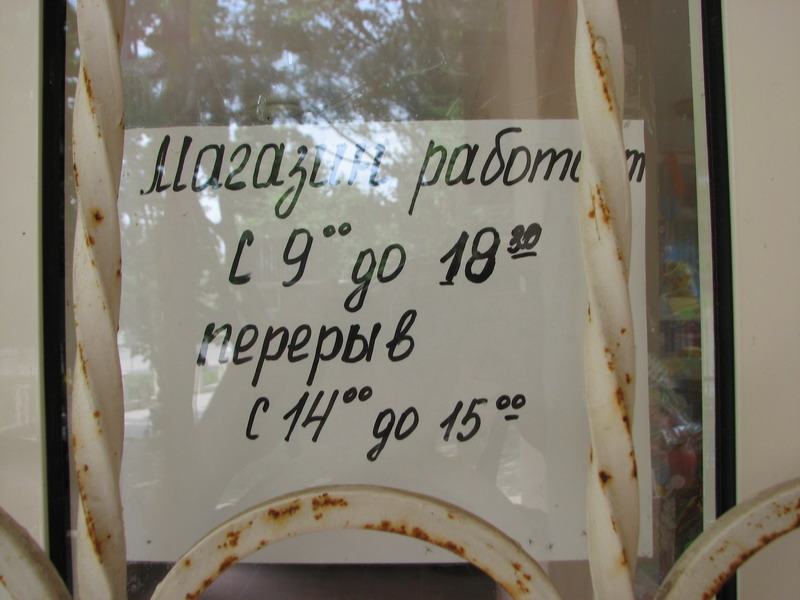 Магазин работает
с 9⁰⁰ до 18³⁰
перерыв
с 14⁰⁰ до 15⁰⁰